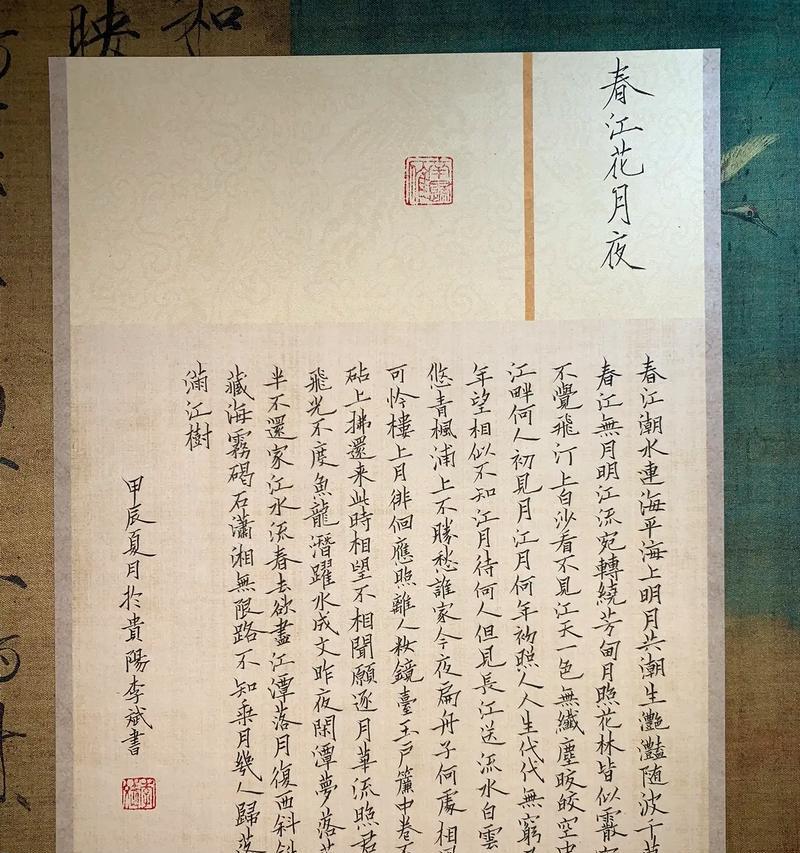 春江花月夜
春江潮水連海平海上明月共潮生灩灩随波千
春江無月明江流宛轉繞芳甸月照花林皆似霰
不覺飛汀上白沙看不見江天一色無纖塵皎皎空中
江畔何人初見月江月何年初照人人生代代無窮
年望相似不知江月待何人但見長江送流水白雲
悠青楓浦上不勝愁誰家今夜扁舟子何處相
可怜樓上月徘徊應照離人妝鏡臺玉戶簾中卷不
砧上拂還来此時相望不相聞願逐月華流照君
飛光不度魚龍潛躍水成文昨夜閑潭夢落
半不還家江水流春去欲盡江潭落月復西斜斜
藏海霧碣石瀟湘無限路不知乘月幾人歸落
滿江樹
甲辰夏月於貴陽李斌書
和
映